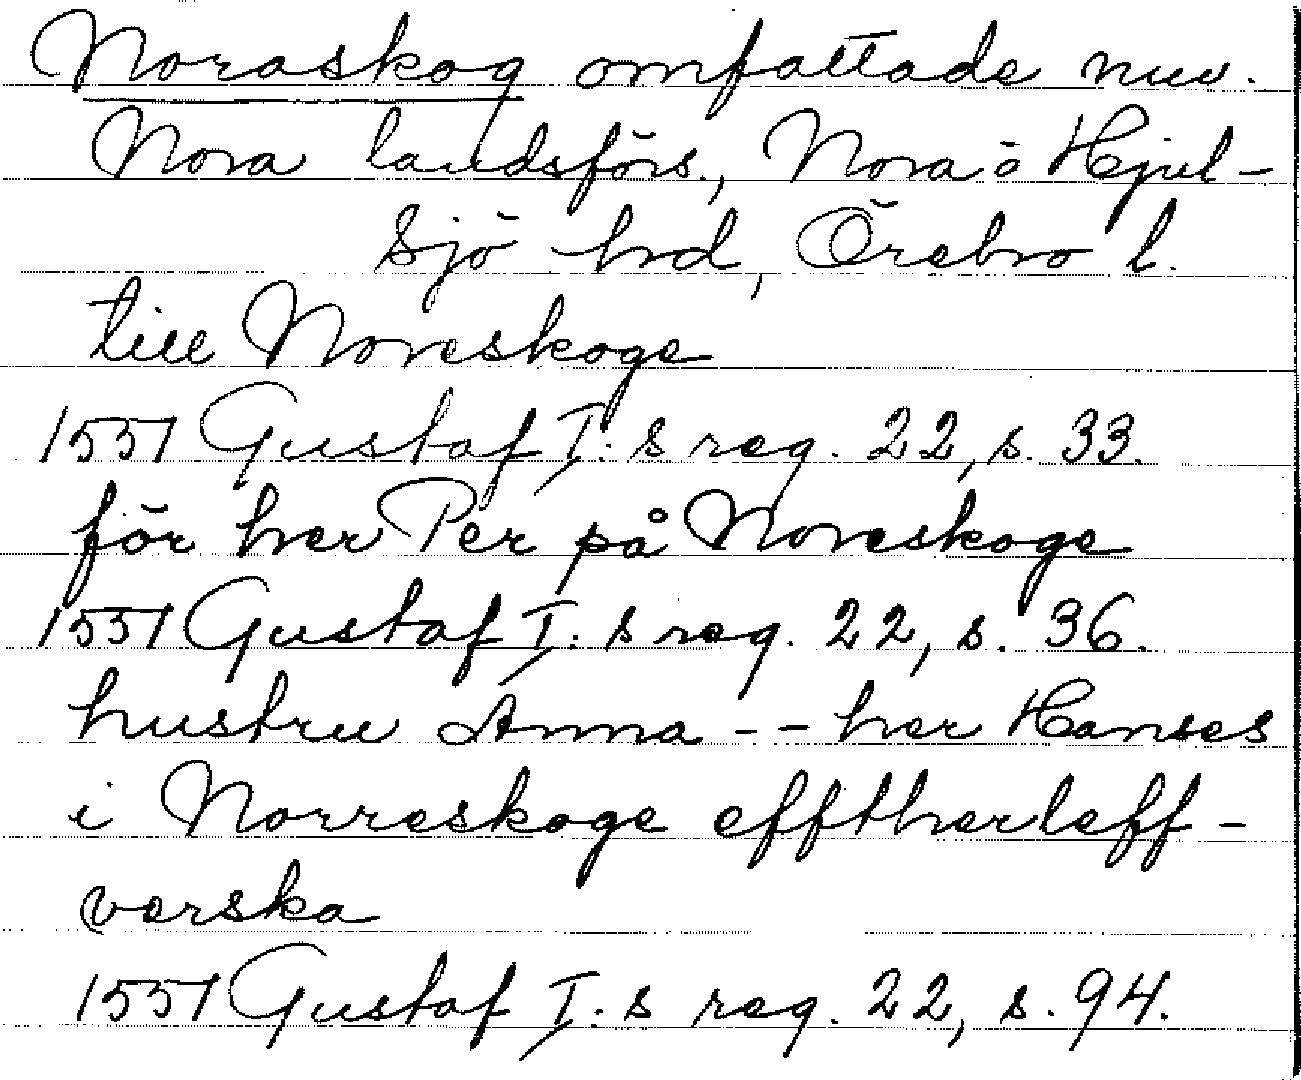 Noraskog omfattade nuv.
Nora landsförs., Nora ö Hjul-
sjö hrd, Örebro l.
till Noreskoge
1551 Gustaf I:s reg. 22, s. 33.
för her Per på Noreskoge
1551 Gustaf I:s reg. 22, s. 36.
hustru Anna -- her Hanses
i Norreskoge efftherleff-
verska
1551 Gustaf I:s reg. 22, s. 94.